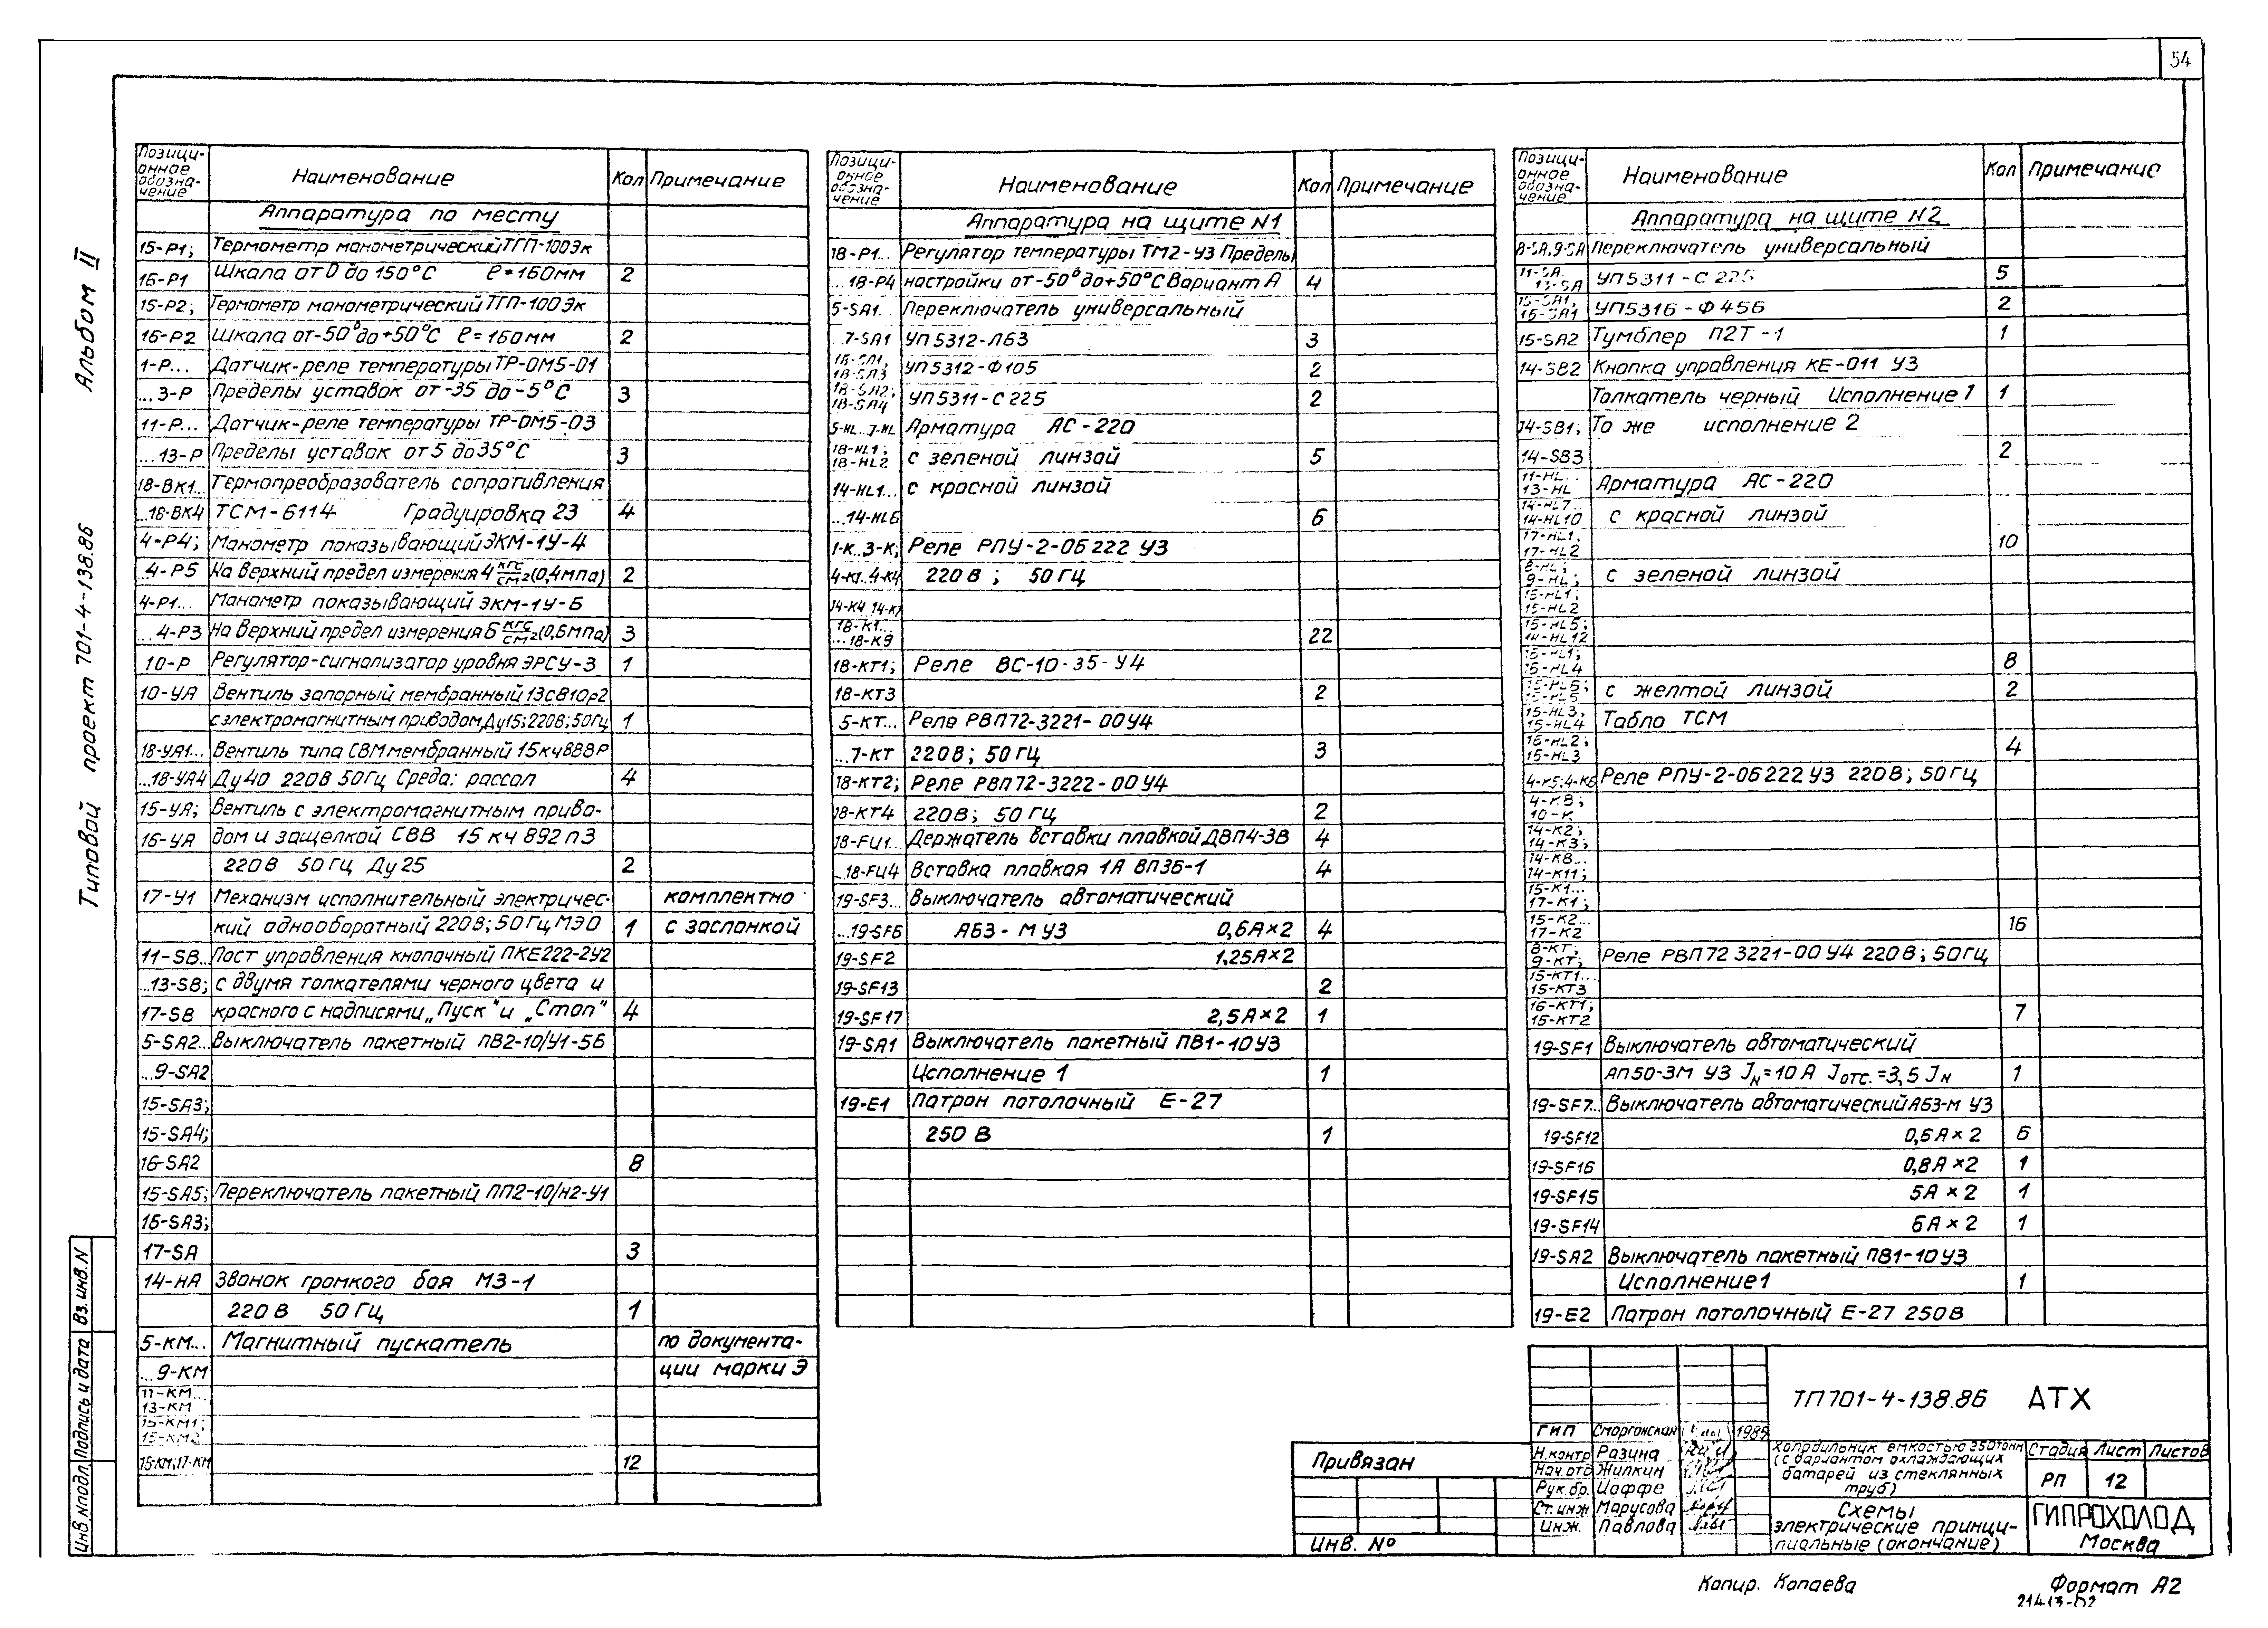 54
Альбом II
Типовой проект 701-4-138.86
Инв.Nподл. Подпись и дата Вз.инв.N
Позиционное обозначение Наименование Кол Примечание
Аппаратура по месту
15-P1; Термометр манометрический ТГП-100Эк
16-P1 Шкала от 0 до 150°С ℓ=160мм 2
15-P2; Термометр манометрический ТГП-100Эк
16-P2 Шкала от-50°до+50°С ℓ=160мм 2
1-P... Датчик-реле температуры ТР-ОМ5-01
...3-P Пределы уставок от-35 до-5°С 3
11-P... Датчик-реле температуры ТР-ОМ5-03
...13-P Пределы уставок от 5 до 35°С 3
18-ВК1... Термопреобразователь сопротивления
...18-ВК4 ТСМ-6114 Градуировка 23 4
4-P4; Манометр показывающий ЭКМ-1У-4
4-P5 На верхний предел измерения 4 кгс/см2(0,4мпа) 2
4-P1... Манометр показывающий ЭКМ-1У-6
...4-P3 На верхний предел измерения 6 кгс/см2(0,6мпа) 3
10-P Регулятор-сигнализатор уровня ЭРСУ-3 1
10-УА Вентиль запорный мембранный 13с810р2
с электромагнитным приводом,Ду15;220В;50Гц 1
18-УА1... Вентиль типа СВМ мембранный 15кч888Р
...18-УА4 Ду40 220В 50Гц Среда: рассол 4
15-УА; Вентиль с электромагнитным приво-
16-УА дом и защелкой СВВ 15кч892п3
220В 50Гц Ду25 2
17-У1 Механизм исполнительный электричес- комплектно
кий однооборотный 220В;50Гц МЭО 1 с заслонкой
11-SB... Пост управления кнопочный ПКЕ222-2У2
...13-SB; с двумя толкателями черного цвета и
17-SB красного с надписями „Пуск" и „Стоп" 4
5-SA2... Выключатель пакетный ПВ2-10/У1-56
...9-SA2
15-SA3;
15-SA4;
16-SA2 8
15-SA5; Переключатель пакетный ПП2-10/Н2-У1
16-SA3;
17-SA 3
14-НА Звонок громкого боя МЗ-1
220В 50Гц 1
5-КМ... Магнитный пускатель по документа-
...9-КМ ции марки Э
11-КМ...
13-КМ
15-КМ1;
15-КМ2;
16-КМ;17-КМ 12
Позиционное обозначение Наименование Кол Примечание
Аппаратура на щите N1
18-P1... Регулятор температуры ТМ2-У3 Пределы
...18-P4 настройки от-50°до+50°С Вариант А 4
5-SA1.. Переключатель универсальный
...7-SA1 УП5312-Л63 3
18-SA1; 18-SA3 УП5312-Ф105 2
18-SA2; 18-SA4 УП5311-С225 2
5-HL..7-HL Арматура АС-220
18-HL1; 18-HL2 с зеленой линзой 5
14-HL1... с красной линзой
...14-HL6 6
1-К..3-К; Реле РПУ-2-06222 У3
4-К1..4-К4 220В; 50Гц
14-К4 14-К7
18-К1...
...18-К9 22
18-КТ1; Реле ВС-10-35-У4
18-КТ3 2
5-КТ... Реле РВП72-3221-00У4
...7-КТ 220В; 50Гц 3
18-КТ2; Реле РВП72-3222-00У4
18-КТ4 220В; 50Гц 2
18-FU1... Держатель вставки плавкой ДВП4-3В 4
...18-FU4 Вставка плавкая 1А ВП3Б-1 4
19-SF3... Выключатель автоматический
...19-SF6 А63-М У3 0,6А×2 4
19-SF2 1,25А×2
19-SF13 2
19-SF17 2,5А×2 1
19-SA1 Выключатель пакетный ПВ1-10У3
Исполнение 1 1
19-Е1 Патрон потолочный Е-27
250 В 1
Позиционное обозначение Наименование Кол Примечание
Аппаратура на щите N2
8-SA,9-SA Переключатель универсальный
11-SA.. 13-SA УП5311-С225 5
15-SA1, 16-SA1 УП5316-Ф456 2
15-SA2 Тумблер П2Т-1 1
14-SB2 Кнопка управления КЕ-011 У3
Толкатель черный Исполнение 1 1
14-SB1; То же исполнение 2
14-SB3 2
11-HL.. 13-HL Арматура АС-220
14-HL7.. 14-HL10 с красной линзой
17-HL1, 17-HL2 10
8-HL; 9-HL; с зеленой линзой
15-HL1; 15-HL2
15-HL5; 14-HL12
16-HL1; 16-HL4 8
с желтой линзой 2
15-HL3, 15-HL4 Табло ТСМ
16-HL2; 15-HL3 4
4-К5;4-К6 Реле РПУ-2-06222 У3 220В; 50Гц
4-К8; 10-К
14-К2; 14-К3;
14-К8... 14-К11;
15-К1... 17-К1;
15-К2... 17-К2 16
8-КТ; 9-КТ; Реле РВП72 3221-00У4 220В; 50Гц
15-КТ1... 15-КТ3
16-КТ1; 15-КТ2 7
19-SF1 Выключатель автоматический
АП50-3М У3 Jн=10А Jотс.=3,5 Jн 1
19-SF7... Выключатель автоматический А63-М У3
19-SF12 0,6А×2 6
19-SF16 0,8А×2 1
19-SF15 5А×2 1
19-SF14 6А×2 1
19-SA2 Выключатель пакетный ПВ1-10У3
Исполнение1 1
19-Е2 Патрон потолочный Е-27 250В
Привязан
Инв. №
ТП701-4-138.86 АТХ
ГИП Сморгонская 1985
Н.контр Разина
Нач.отд Жилкин
Рук.бр. Иоффе
Ст.инж Марусова
Инж. Павлова
Холодильник емкостью 250тонн
(с вариантом охлаждающих
батарей из стеклянных
труб)
Стадия Лист Листов
РП 12
Схемы
электрические принци-
пиальные (окончание)
ГИПРОХОЛОД
Москва
Копир. Копаева
Формат А2
21413-02